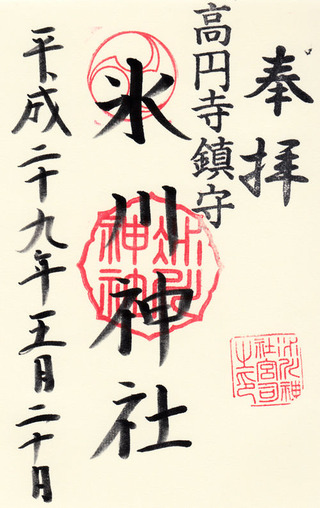 奉拝
高円寺鎮守
氷川神社
平成二十九年五月二十日
氷川神社
氷川神社宮司之印